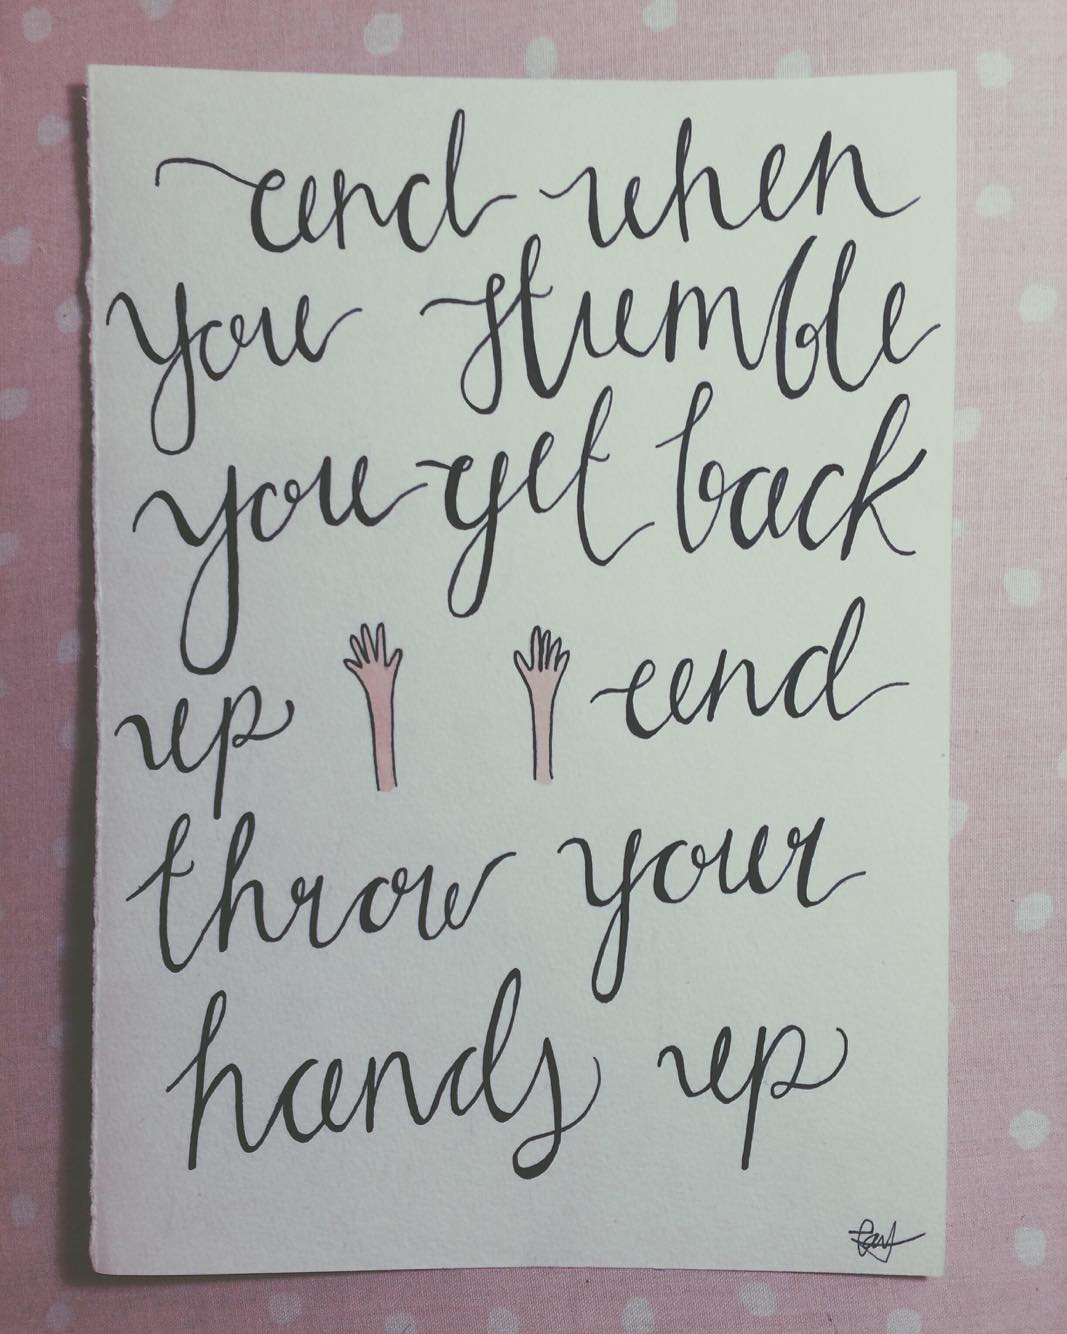 and when
you stumble
you get back
up and
throw your
hands up